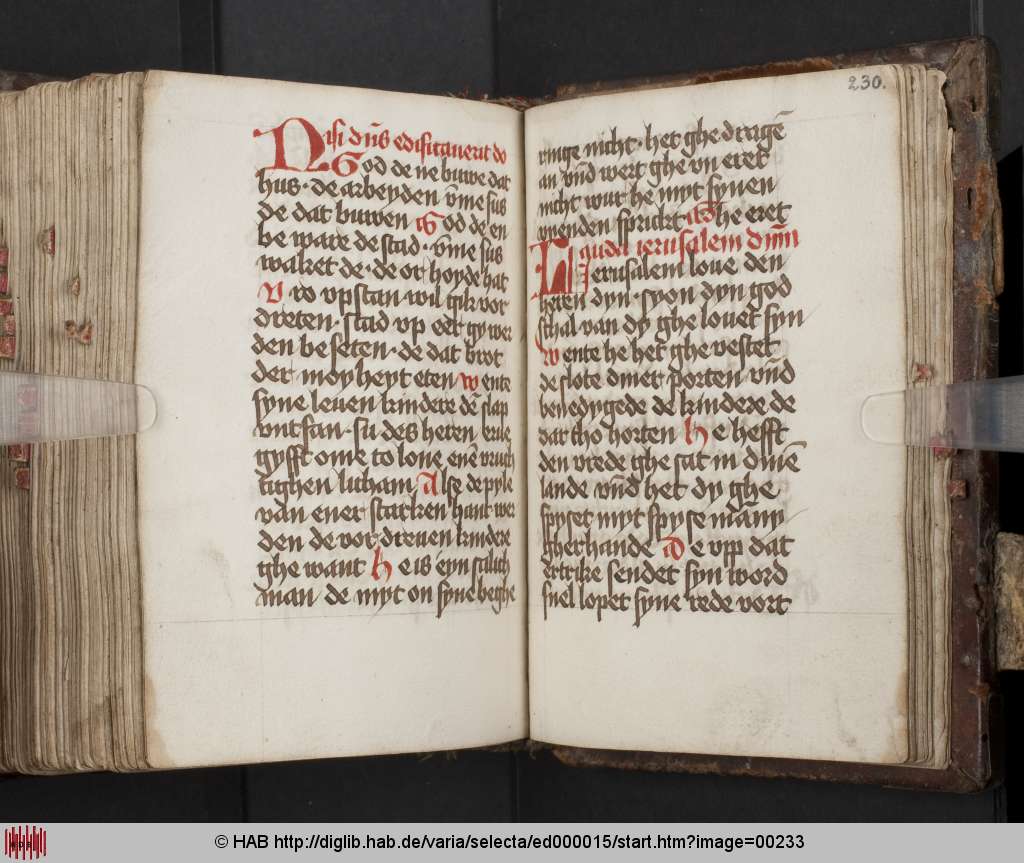 Nisi dn̄s edificauerit do
God de ne buwe dat
hus · de arbeyden v̄me sus
de dat buwen God de en
beware de stad · v̄me sus
waket de · de or hoyde hat
Vro vpstan wil gik vor
dreten · stad vp eer gy wer
den beseten · de dat brot
der moyheyt eten wente
syne leuen kindere dē slap
vntfan · su des heren erue
gyfft ome to lone ene vruch
tighen licham Alse de pyle
van ener starken hant wer
den de vordreuen kindere
ghewant he is eyn salich
man · de myt on syne beghe
230.
ringe nicht · het ghedragē
an vn̄d wert ghe vn eret
nicht wur he myt synen
vienden sprickt he eret
Lauda ierusalem dnm̄
Ierusalem loue den
heren dyn · syon dyn god
schal van dy ghelouet syn
wente he het gheuestet
de slote diner porten vn̄d
benedygede de kindere de
dat tho horten he hefft
den vrede ghesat in dinē
lande vn̄d het dy ghe
spyset myt spyse māny
gherhande De vpp dat
ertrike sendet syn word
snel lopet syne rede vort
© HAB http://diglib.hab.de/varia/selecta/ed000015/start.htm?image=00233